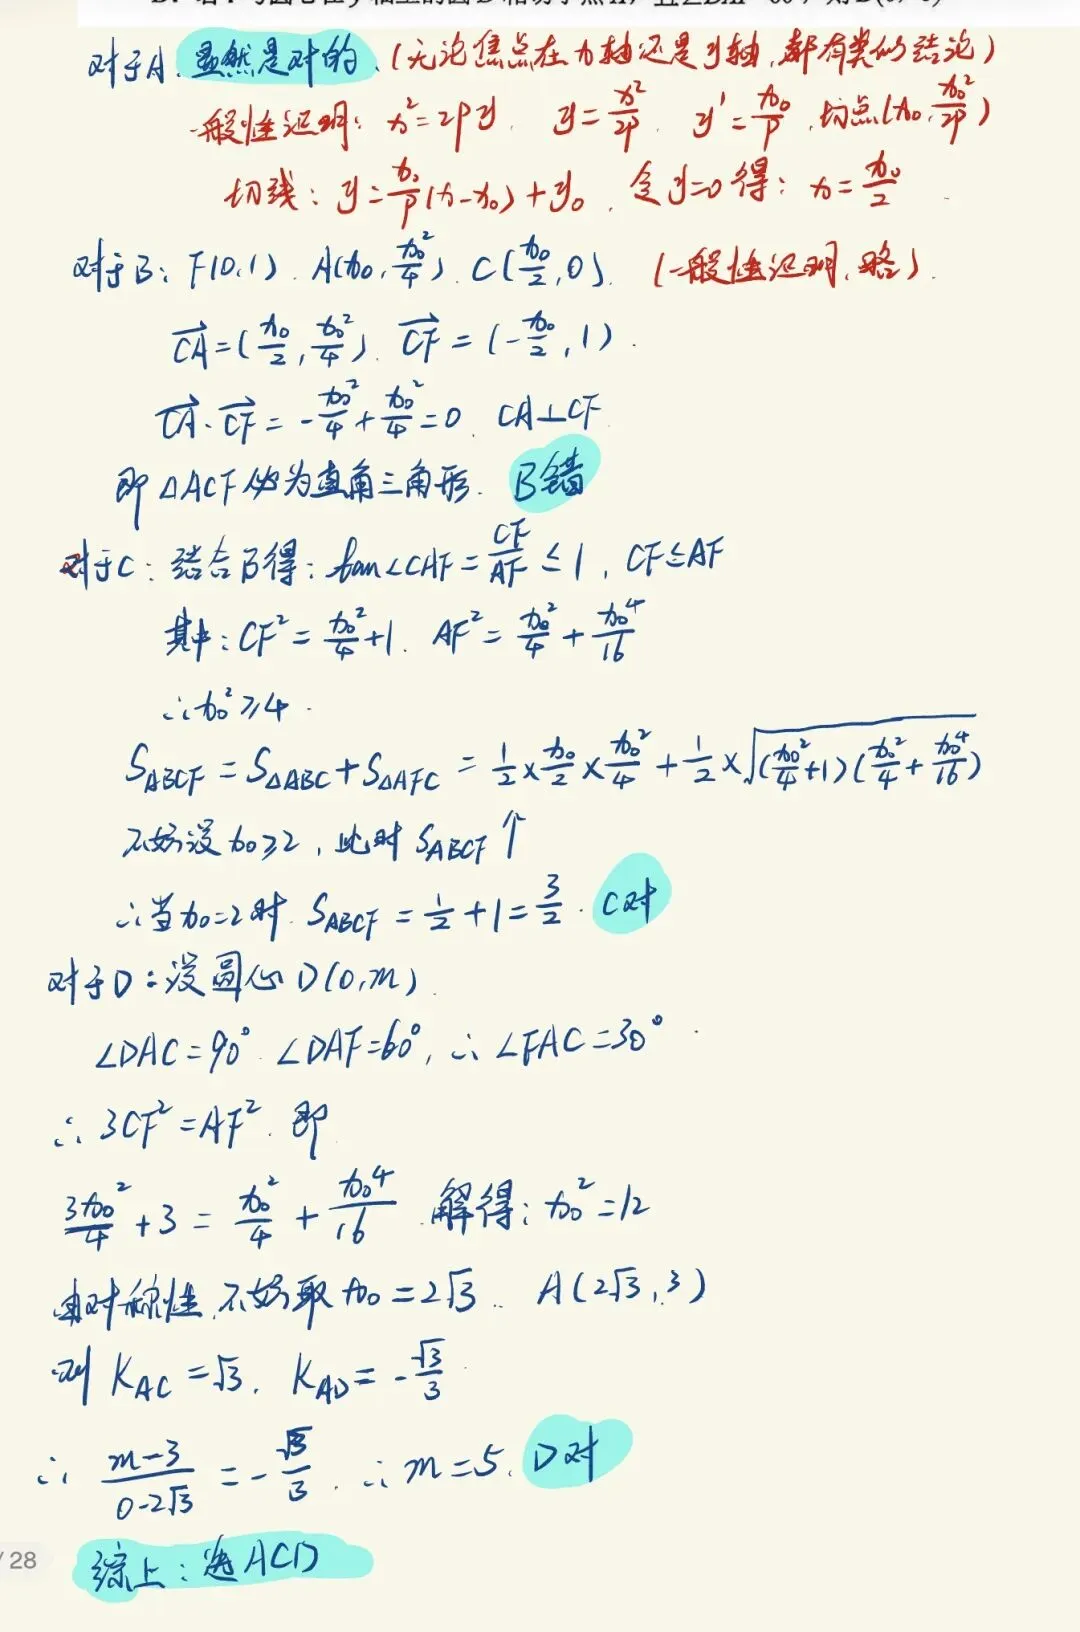 对于A：显然是对的.（无论焦点在x轴还是y轴，都有类似结论）
一般性证明：x²=2py. y=x²/2p. y'=x₀/p. 切点(x₀, x₀²/2p)
切线：y=x₀/p(x-x₀)+y₀. 令y=0得：x=x₀/2
对于B：F(0,1). A(x₀, x₀²/4). C(x₀/2, 0). （一般性证明，略）.
CA→=(x₀/2, x₀²/4). CF→=(-x₀/2, 1).
CA→·CF→=-x₀²/4+x₀²/4=0. CA⊥CF
即△ACF必为直角三角形. B错
对于C：结合B得：tan∠CAF=CF/AF≤1, CF≤AF
其中：CF²=x₀²/4+1. AF²=x₀²/4+x₀⁴/16
∴x₀²≥4.
S_ABCF=S△ABC+S△AFC=1/2×x₀/2×x₀²/4+1/2×√((x₀²/4+1)(x₀²/4+x₀⁴/16))
不妨设x₀≥2，此时S_ABCF↑
∴当x₀=2时. S_ABCF=1/2+1=3/2. C对
对于D：设圆心D(0,m).
∠DAC=90° ∠DAF=60°, ∴∠FAC=30°.
∴3CF²=AF². 即
3x₀²/4+3=x₀²/4+x₀⁴/16 解得：x₀²=12
由对称性，不妨取x₀=2√3. A(2√3,3)
则K_AC=√3. K_AD=-√3/3
∴(m-3)/(0-2√3)=-√3/3. ∴m=5. D对
/28
综上：选ACD